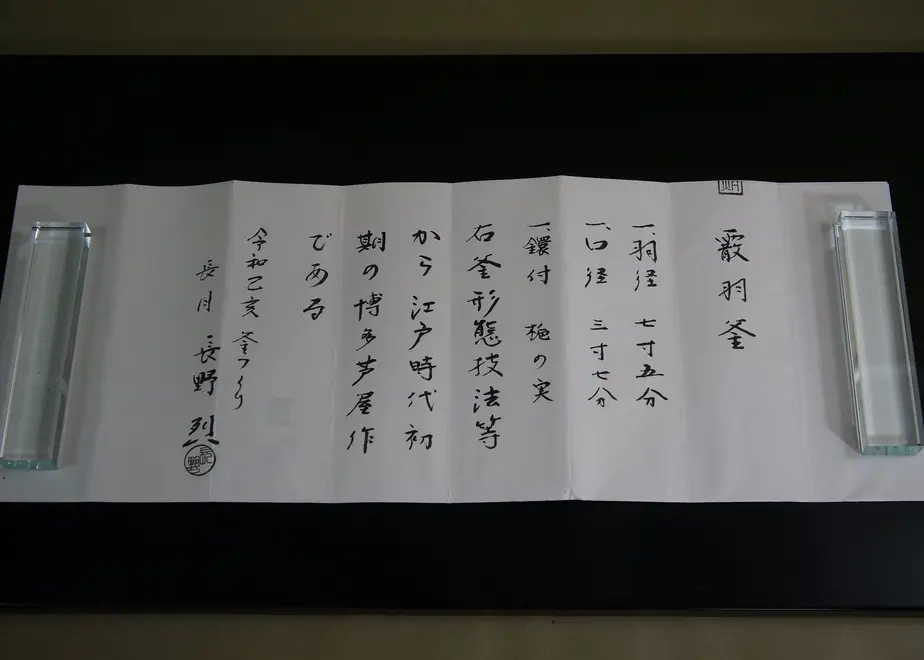 霰羽釜
一、羽径 七寸五分
一、口径 三寸七分
一、鐶付 梔の実
右釜形態技法等
から江戸時代初
期の博多芦屋作
である
令和己亥 釜つくり
長月 長野 烈
長野